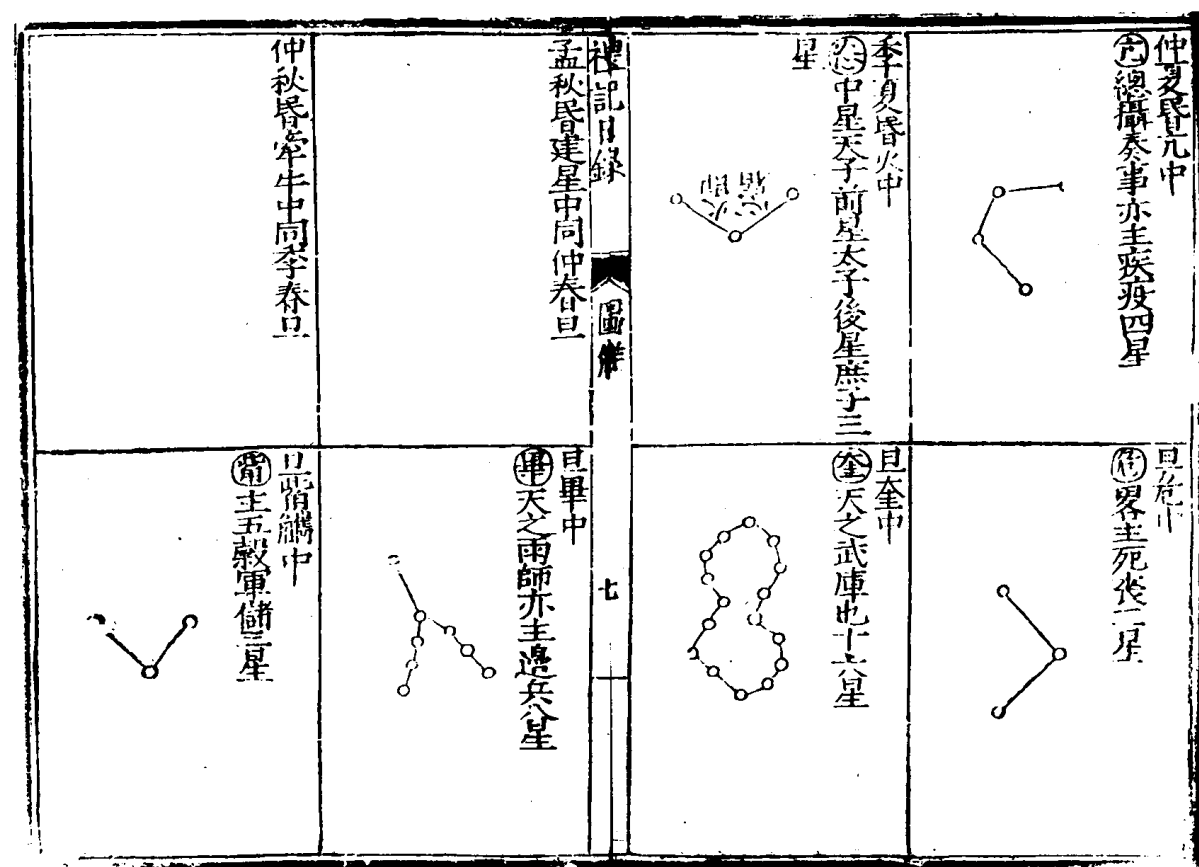 仲夏昏亢中
亢總攝奏事亦主疾疫四星
旦危中
危畧主死喪三星
季夏昏火中
心中星天子前星太子後星庶子三
星
旦奎中
奎天之武庫也十六星
禮記目録
圖
七
孟秋昏建星中同仲春旦
旦畢中
畢天之雨師亦主邊兵八星
仲秋昏牽牛中同季春旦
旦觜觿中
觜主五穀軍儲三星